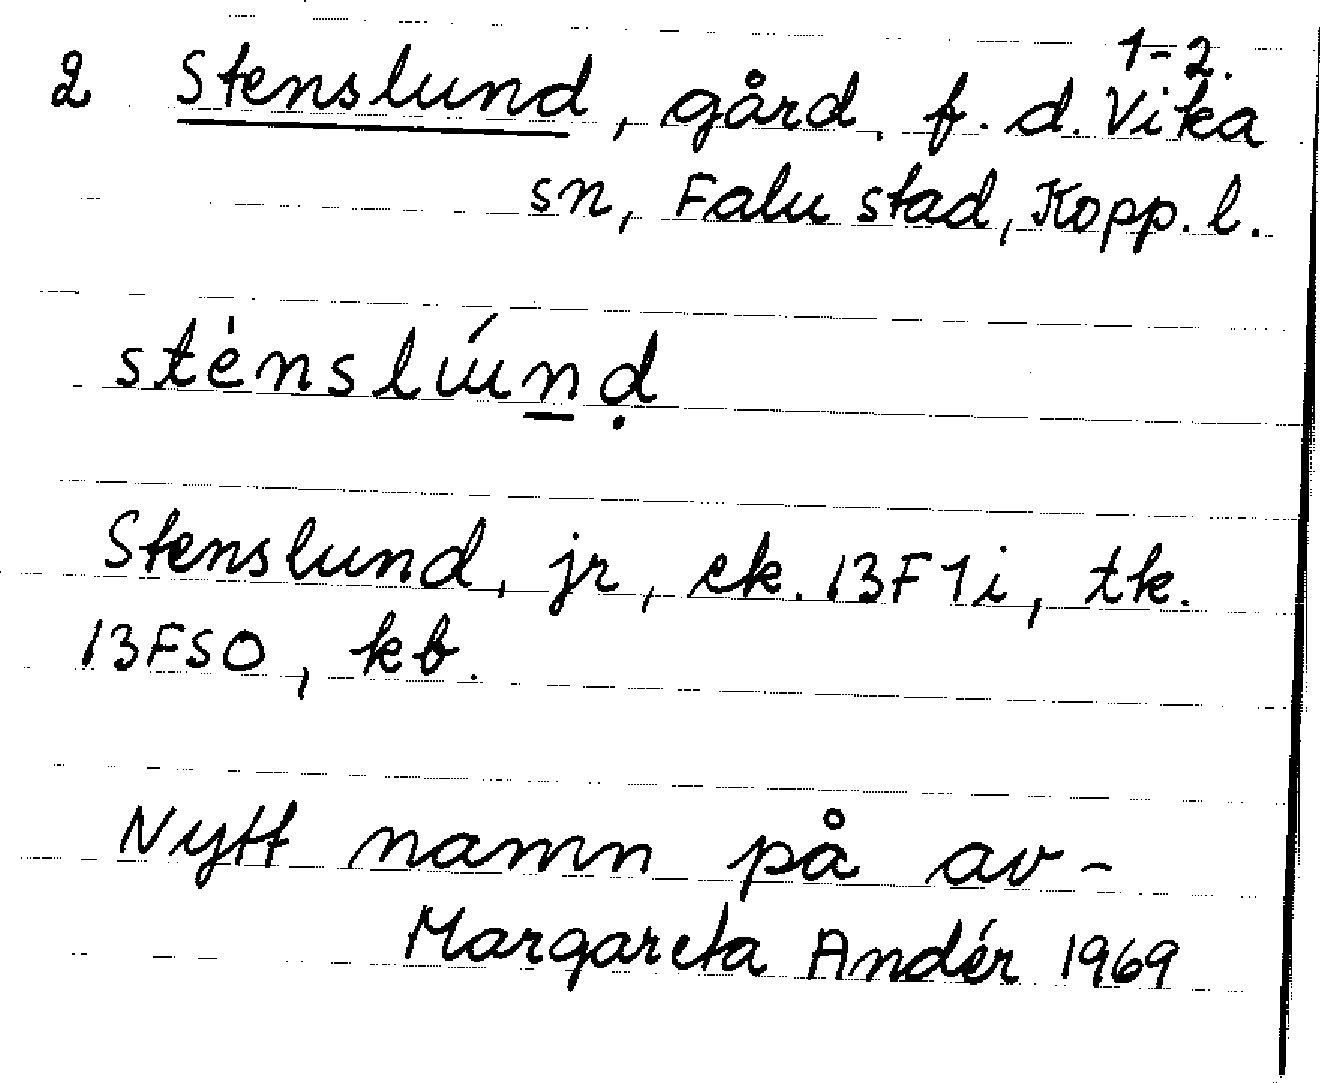 1-2.
2 Stenslund, gård, f. d. Vika
sn, Falu stad, Kopp. l.
stènslúnḍ
Stenslund, jr, ek. 13F1i, tk.
13FSO, kb.
Nytt namn på av-
Margareta Andér 1969